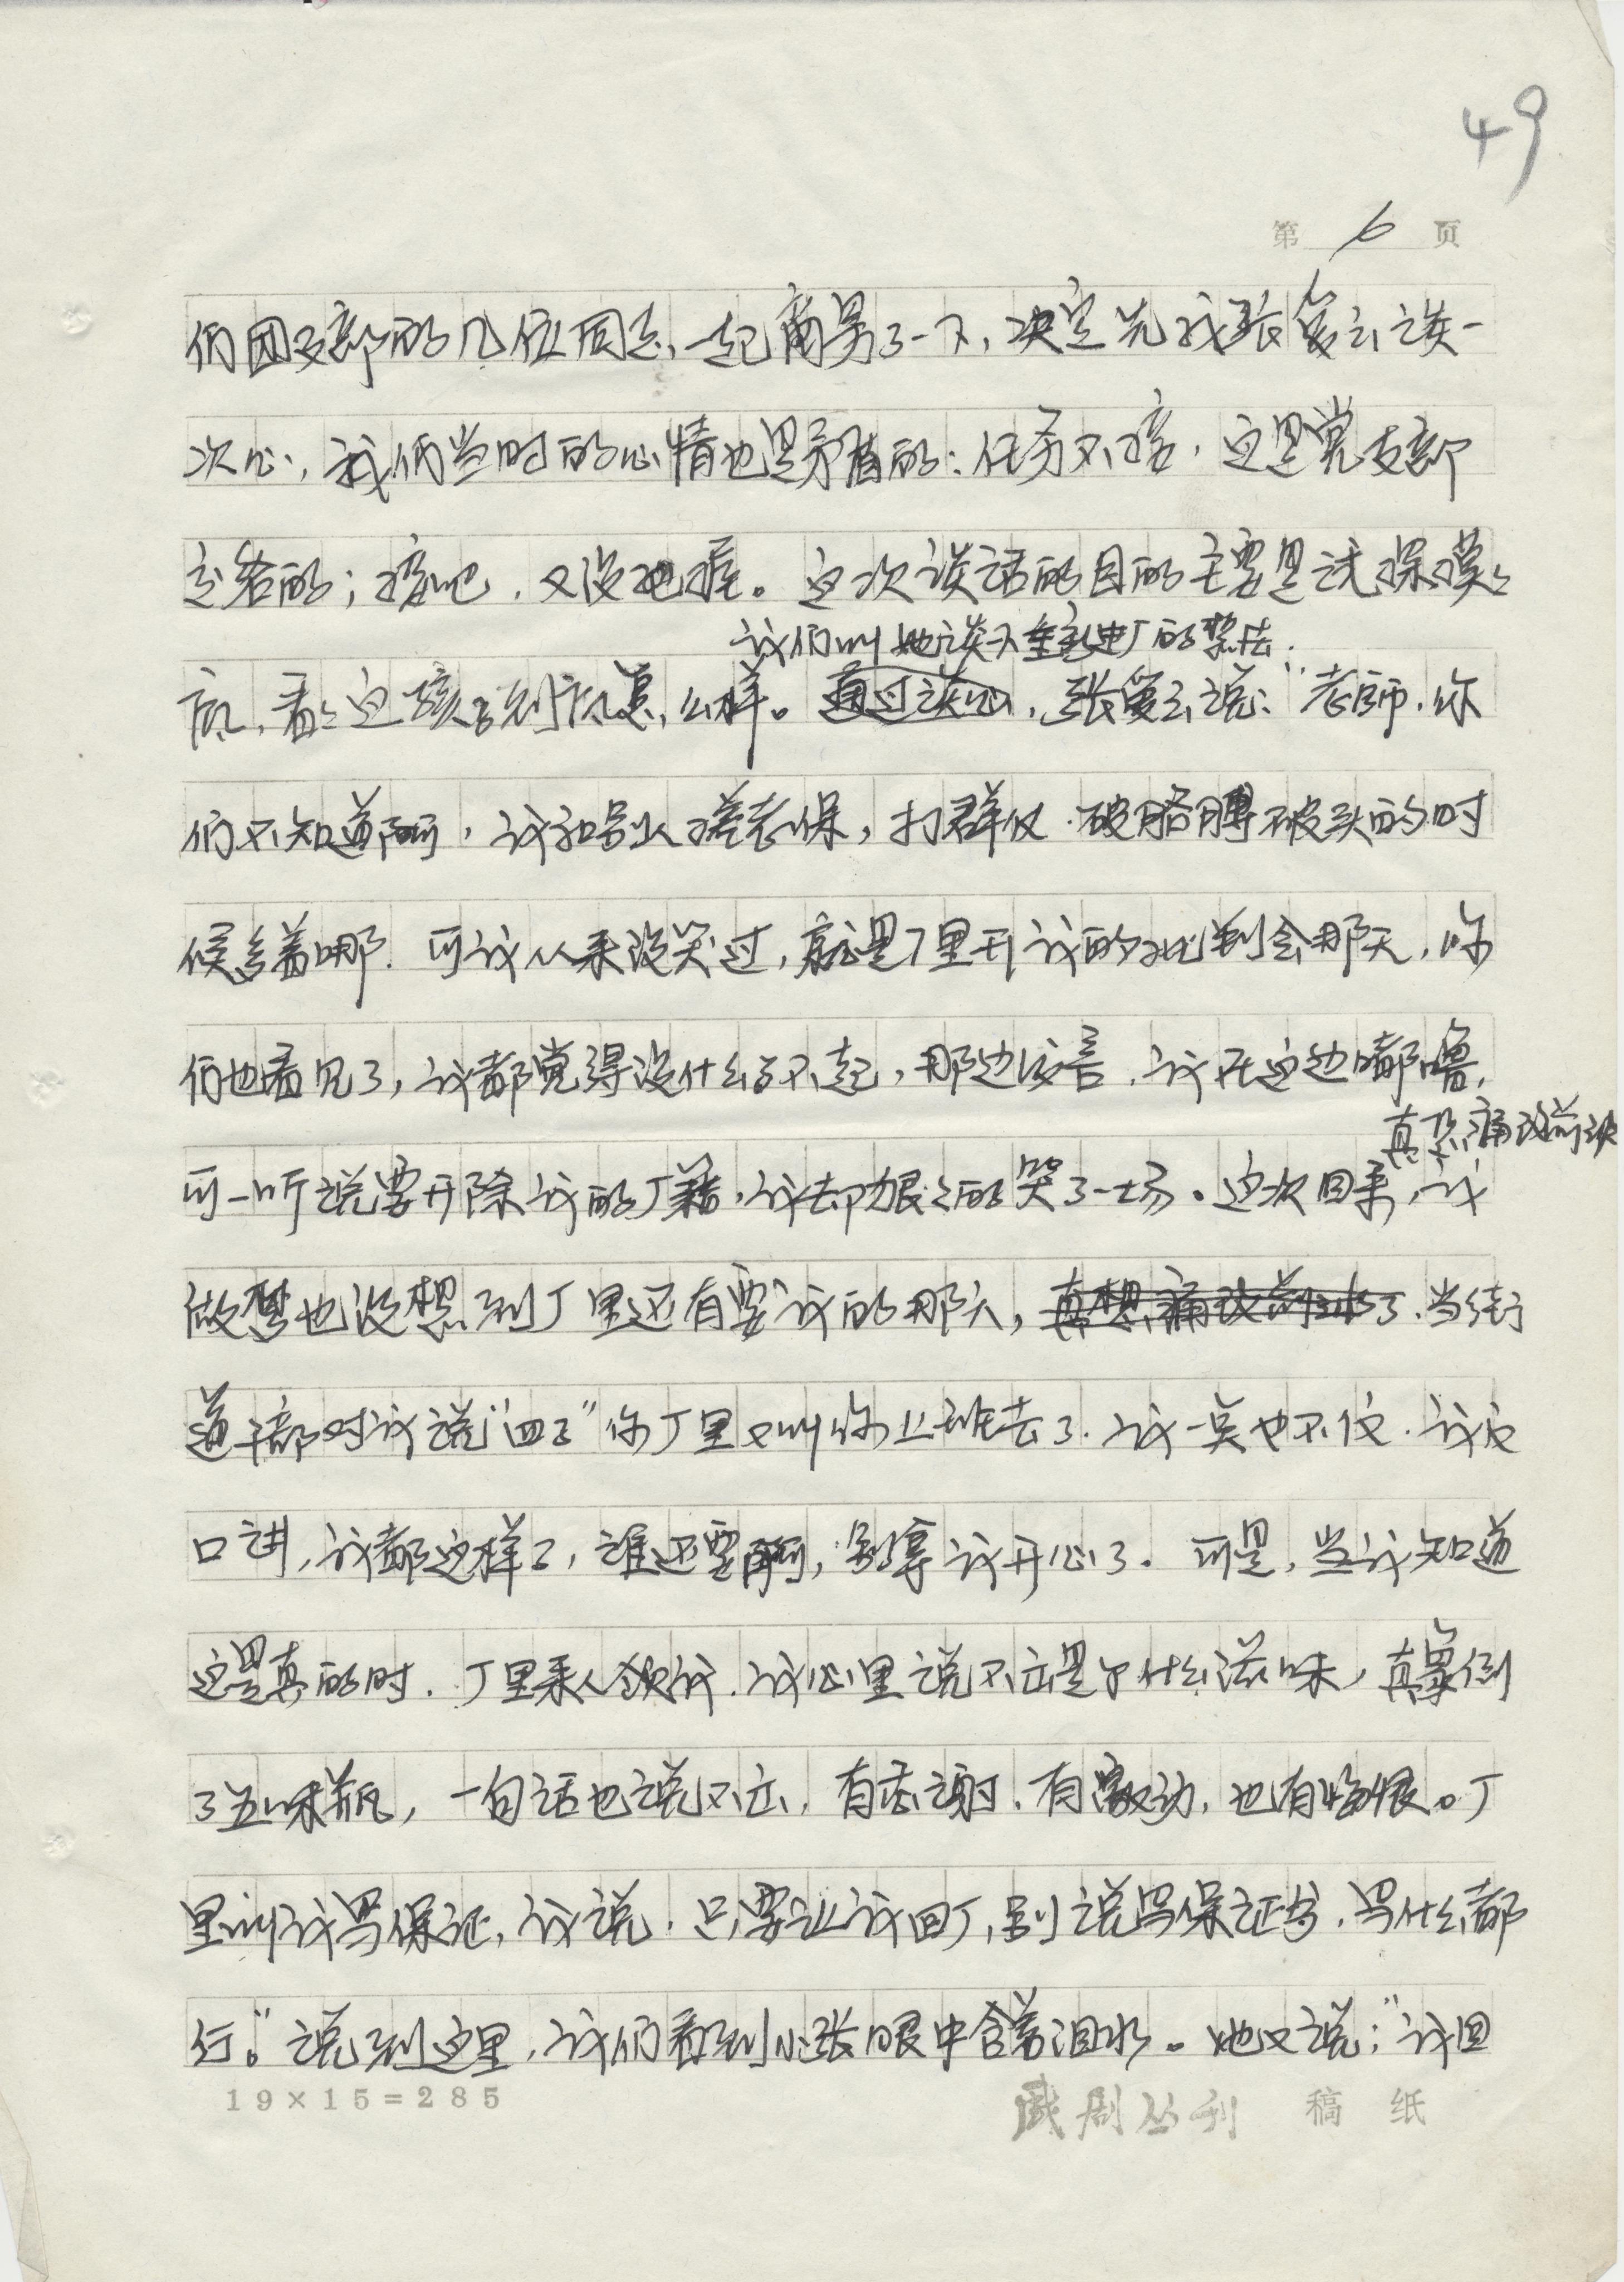 49
第 6 页
们团支部的几位同志,一起商量了一下,决定先找张爱云谈一
次心,我们当时的心情也是矛盾的:任务不接,这是党支部
交给的;接吧,又没把握。这次谈话的目的主要是试探摸々
我们叫她谈谈重新进厂的想法。
底,看々这孩子到底怎么样。通过谈心,张爱云说:“老师,你
们不知道啊,我和别人搭老保,打群仗,破胳膊破头的时
候多着哪,可我从来没哭过,就是厂里开我的批判会那天,你
们也看见了,我都觉得没什么了不起,那边发言,我在这边嘟噜,
真想痛改前非
可一听说要开除我的厂籍,我却狠々的哭了一场。这次回来,我
做梦也没想到厂里还有要我的那天,真想痛改前非了,当街
道干部对我说“四子”你厂里又叫你上班去了,我一点也不信,我
口讲,我都这样了,谁还要啊,别拿我开心了。可是,当我知道
这是真的时,厂里来人领我,我心里说不出是个什么滋味,真象倒
了五味瓶,一句话也说不出,有感谢,有激动,也有悔恨。厂
里叫我写保证,我说,只要让我回厂,别说写保证书,写什么都
行。”说到这里,我们看到小张眼中含着泪水。她又说:“我回
19×15=285
戏剧丛刊 稿 纸